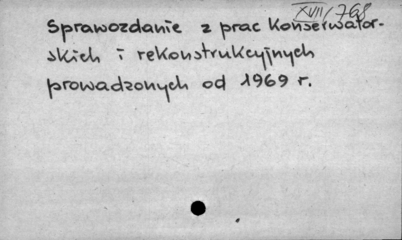 XVII/768
Sprawozdanie z prac konserwator-
skich i rekonstrukcyjnych
prowadzonych od 1969 r.